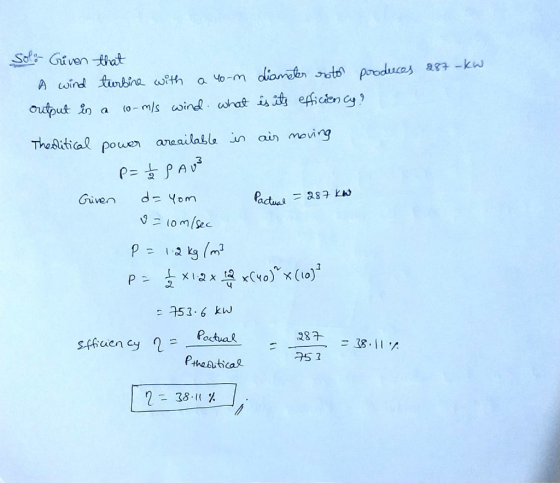 Sol:- Given that
A wind turbine with a 40-m diameter rotor produces 287-kW
output in a 10-m/s wind. what is its efficiency?
Theoritical power available in air moving
P = 1/2 ρ A V³
Given d = 40m Pactual = 287 kW
V = 10 m/sec
ρ = 1.2 kg/m³
P = 1/2 × 1.2 × π/4 × (40)² × (10)³
= 753.6 kW
Efficiency η = Pactual / Ptheoritical = 287 / 753 = 38.11 %
η = 38.11 %